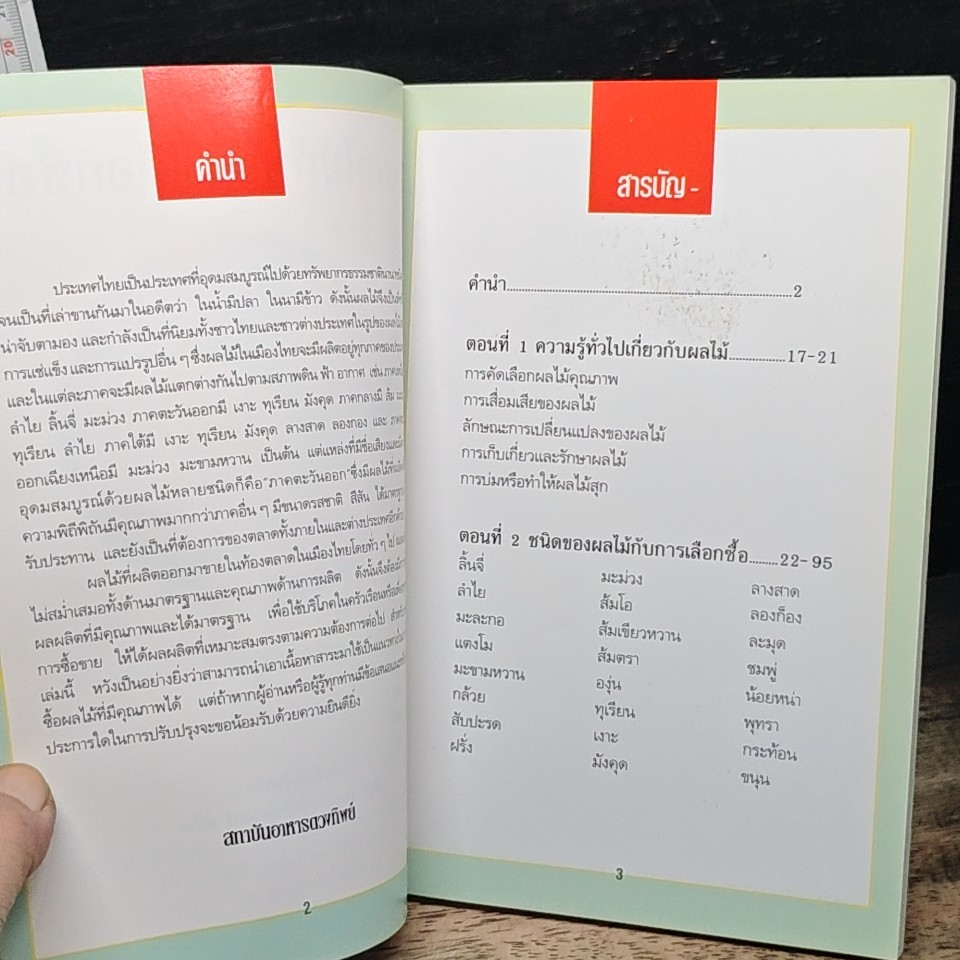 20
คำนำ
ประเทศไทยเป็นประเทศที่อุดมสมบูรณ์ไปด้วยทรัพยากรธรรมชาตินานา
จนเป็นที่เล่าขานกันมาในอดีตว่า ในน้ำมีปลา ในนามีข้าว ดังนั้นผลไม้จึงเป็น
น่าจับตามอง และกำลังเป็นที่นิยมทั้งชาวไทยและชาวต่างประเทศในรูปของ
การแช่แข็ง และการแปรรูปอื่น ๆ ซึ่งผลไม้ในเมืองไทยจะมีผลิตอยู่ทุกภาคของ
และในแต่ละภาคจะมีผลไม้แตกต่างกันไปตามสภาพดิน ฟ้า อากาศ เช่น
ลำไย ลิ้นจี่ มะม่วง ภาคตะวันออกมี เงาะ ทุเรียน มังคุด ภาคกลางมี ส้ม
ทุเรียน ลำไย ภาคใต้มี เงาะ ทุเรียน มังคุด ลางสาด ลองกอง และ
ออกเฉียงเหนือมี มะม่วง มะขามหวาน เป็นต้น แต่แหล่งที่มีชื่อเสียง
อุดมสมบูรณ์ด้วยผลไม้หลายชนิดก็คือ"ภาคตะวันออก"ซึ่งมีผลไม้
ความพิถีพิถันมีคุณภาพมากกว่าภาคอื่น ๆ มีขนาดรสชาติ สีสัน ได้
รับประทาน และยังเป็นที่ต้องการของตลาดทั้งภายในและต่างประเทศ
ผลไม้ที่ผลิตออกมาขายในท้องตลาดในเมืองไทยโดยทั่ว ๆ ไป
ไม่สม่ำเสมอทั้งด้านมาตรฐานและคุณภาพด้านการผลิต ดังนั้นจึง
ผลผลิตที่มีคุณภาพและได้มาตรฐาน เพื่อใช้บริโภคในครัวเรือน
การซื้อขาย ให้ได้ผลผลิตที่เหมาะสมตรงตามความต้องการต่อไป
เล่มนี้ หวังเป็นอย่างยิ่งว่าสามารถนำเอาเนื้อหาสาระมาใช้เป็นแนวทาง
ซื้อผลไม้ที่มีคุณภาพได้ แต่ถ้าหากผู้อ่านหรือผู้รู้ทุกท่านมี
ประการใดในการปรับปรุงจะขอน้อมรับด้วยความยินดียิ่ง
สถาบันอาหารดวงทิพย์
2
สารบัญ -
คำนำ..........2
ตอนที่ 1 ความรู้ทั่วไปเกี่ยวกับผลไม้..........17-21
การคัดเลือกผลไม้คุณภาพ
การเสื่อมเสียของผลไม้
ลักษณะการเปลี่ยนแปลงของผลไม้
การเก็บเกี่ยวและรักษาผลไม้
การบ่มหรือทำให้ผลไม้สุก
ตอนที่ 2 ชนิดของผลไม้กับการเลือกซื้อ.........22-95
ลิ้นจี่
ลำไย
มะละกอ
แตงโม
มะขามหวาน
กล้วย
สับปะรด
ฝรั่ง
มะม่วง
ส้มโอ
ส้มเขียวหวาน
ส้มตรา
องุ่น
ทุเรียน
เงาะ
มังคุด
ลางสาด
ลองก็อง
ละมุด
ชมพู่
น้อยหน่า
พุทรา
กระท้อน
ขนุน
3